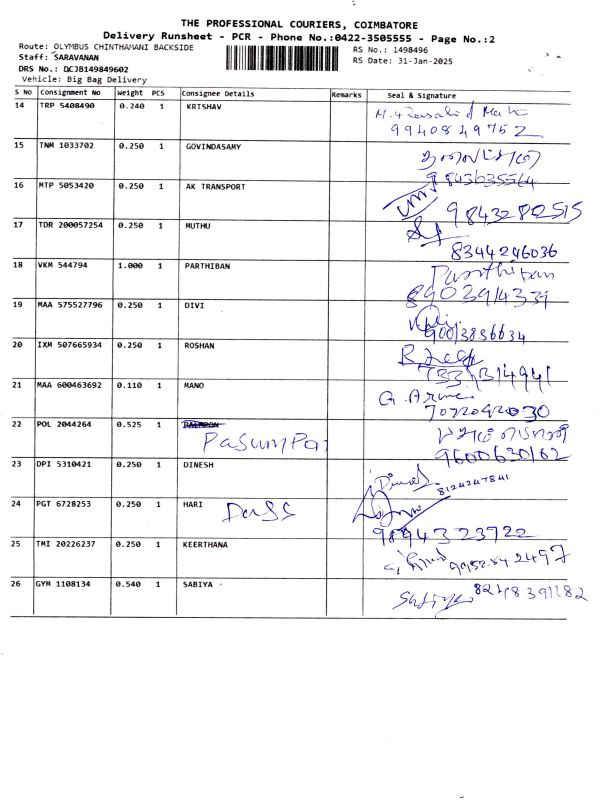 THE PROFESSIONAL COURIERS, COIMBATORE
Delivery Runsheet - PCR - Phone No.:0422-3505555 - Page No.:2
Route: OLYMBUS CHINTHAMANI BACKSIDE RS No.: 1498496
Staff: SARAVANAN RS Date: 31-Jan-2025
DRS No.: DCJB149849602
Vehicle: Big Bag Delivery
S NO Consignment No Weight PCS Consignee Details Remarks Seal & Signature
14 TRP 5408490 0.240 1 KRISHAV
9940849752
15 TNM 1033702 0.250 1 GOVINDASAMY
9843635564
16 MTP 5053420 0.250 1 AK TRANSPORT
17 TDR 200057254 0.250 1 MUTHU
8344246036
18 VKM 544794 1.000 1 PARTHIBAN Parthiban
19 MAA 575527796 0.250 1 DIVI
20 IXM 507665934 0.250 1 ROSHAN
21 MAA 600463692 0.110 1 MANO
22 POL 2044264 0.525 1
9600630162
23 DPI 5310421 0.250 1 DINESH
8124247841
24 PGT 6728253 0.250 1 HARI
9894323722
25 TMI 20226237 0.250 1 KEERTHANA
26 GYM 1108134 0.540 1 SABIYA